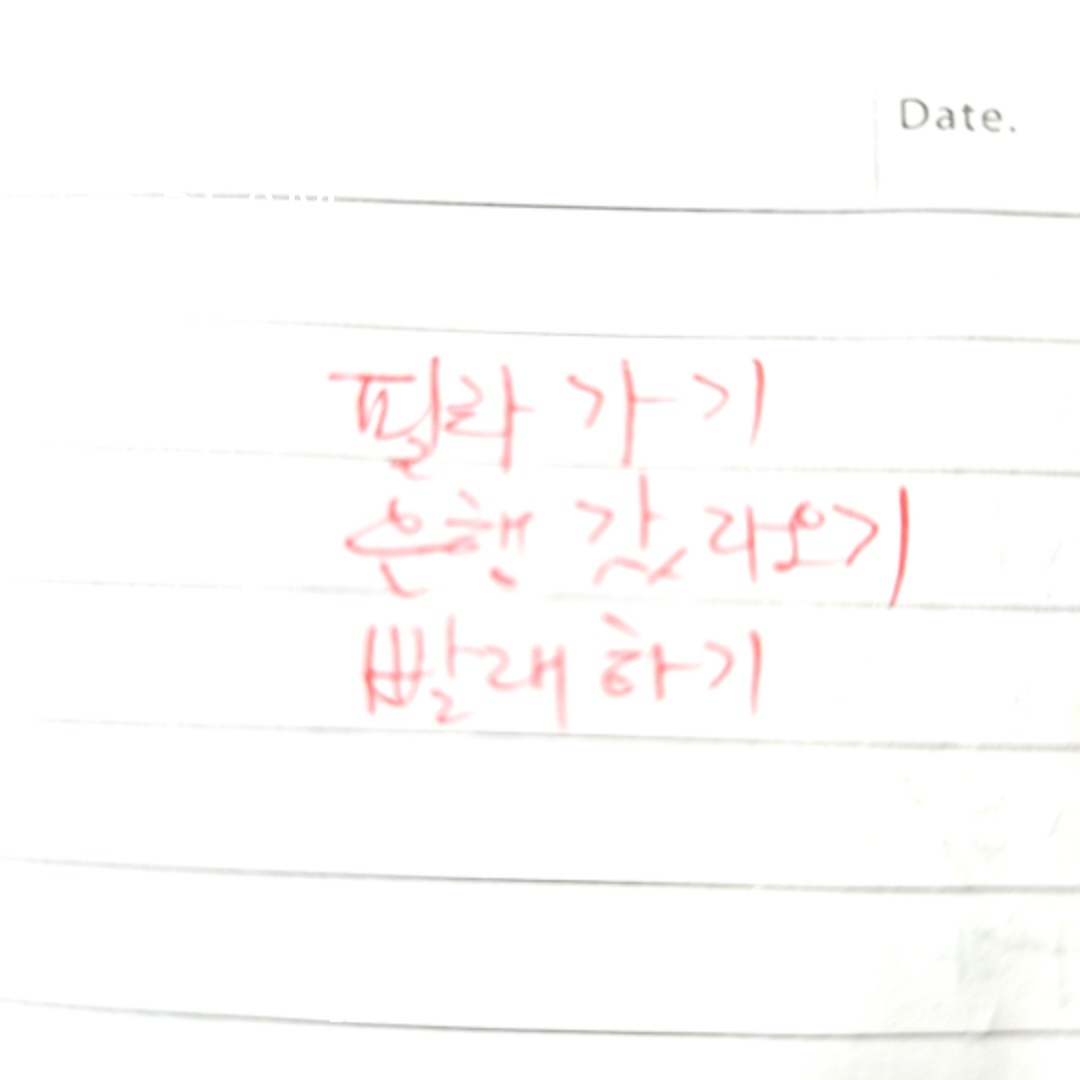 Date.
필라 가기
은행 갔다오기
빨래 하기